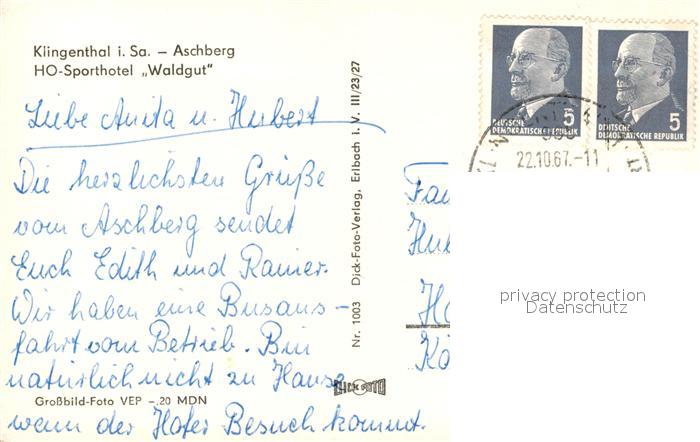 Klingenthal i. Sa. – Aschberg
HO-Sporthotel „Waldgut"
Liebe Anita u. Hubert
Die herzlichsten Grüße
vom Aschberg sendet
Euch Edith und Rainer.
Wir haben eine Busaus-
fahrt vom Betrieb. Bin
natürlich nicht zu Hause
wenn der Hofer Besuch kommt.
Großbild-Foto VEP –,20 MDN
Nr. 1003 Dick-Foto-Verlag, Erlbach i. V. III/23/27
DICK FOTO
5
DEUTSCHE
DEMOKRATISCHE REPUBLIK
5
DEUTSCHE
DEMOKRATISCHE REPUBLIK
22.10.67.-11
Fam
Hub
Ho
Kö
privacy protection
Datenschutz